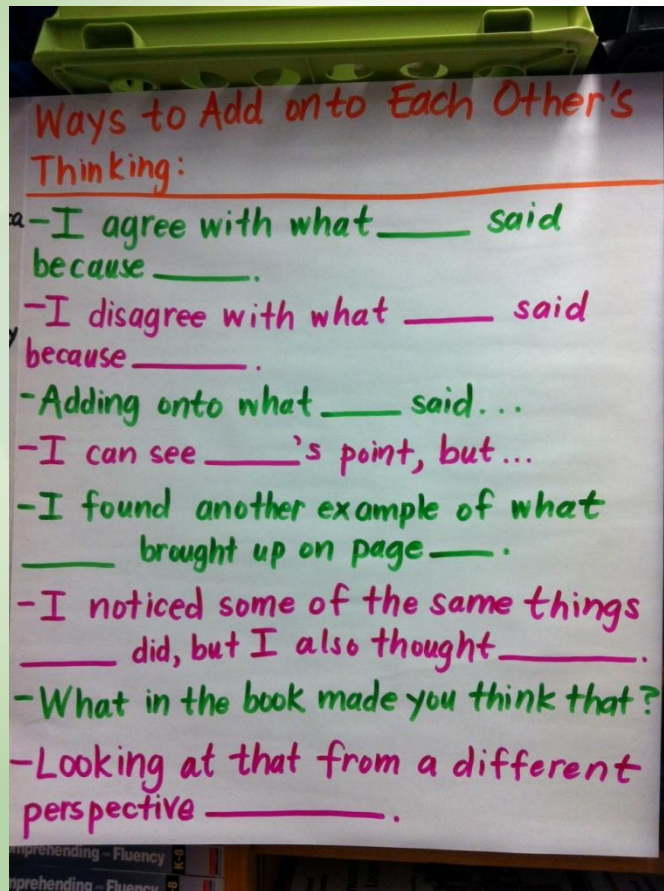 Ways to Add onto Each Other's
Thinking:
-I agree with what____ said
because____.
-I disagree with what ____ said
because____.
-Adding onto what ____ said...
-I can see ____'s point, but...
-I found another example of what
____ brought up on page___.
-I noticed some of the same things
____ did, but I also thought____.
-What in the book made you think that?
-Looking at that from a different
perspective ____.
mprehending - Fluency K-8
mprehending - Fluency 8